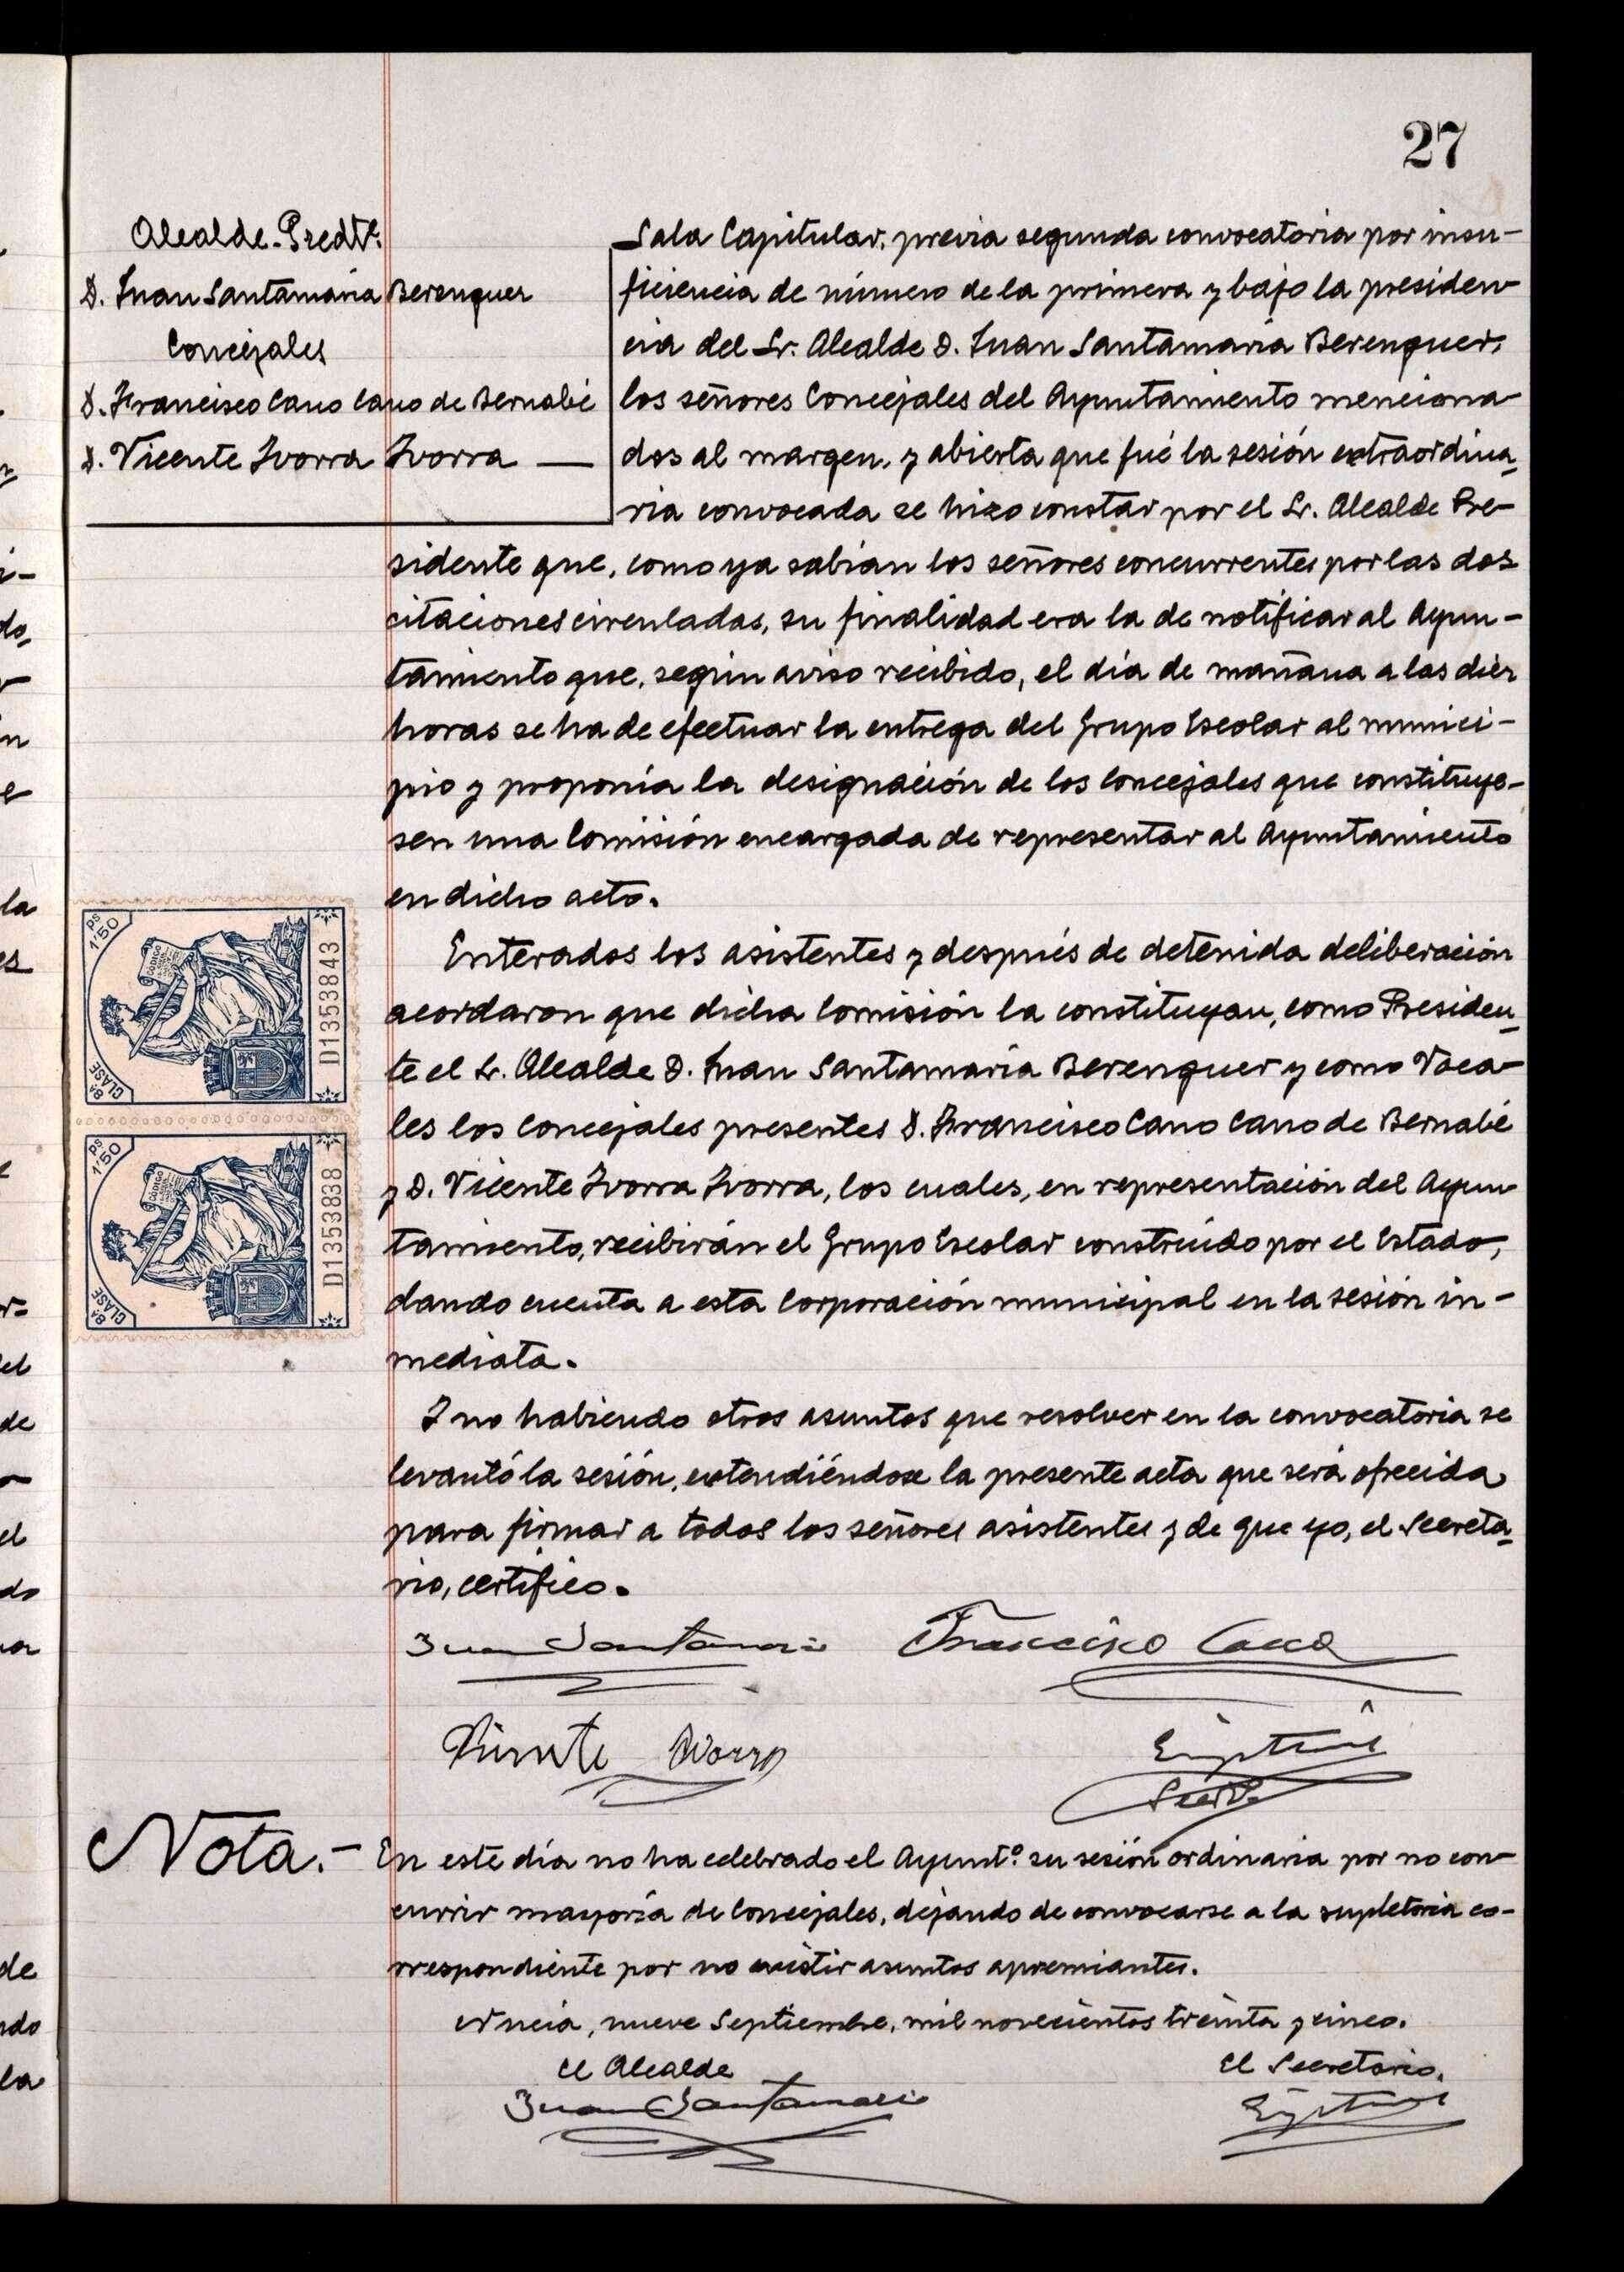 27
Alcalde-Predte.
D. Juan Santamaría Berenguer
Concejales
D. Francisco Cano Cano de Bernabé
D. Vicente Ivorra Ivorra —
Sala Capitular, previa segunda convocatoria por insu-
ficiencia de número de la primera y bajo la presiden-
cia del Sr. Alcalde D. Juan Santamaría Berenguer,
los señores Concejales del Ayuntamiento menciona-
dos al margen, y abierta que fué la sesión extraordina-
ria convocada se hizo constar por el Sr. Alcalde Pre-
sidente que, como ya sabían los señores concurrentes por las dos
citaciones circuladas, su finalidad era la de notificar al Ayun-
tamiento que, según aviso recibido, el día de mañana a las diez
horas se ha de efectuar la entrega del Grupo Escolar al munici-
pio y proponía la designación de los Concejales que constituye-
sen una Comisión encargada de representar al Ayuntamiento
en dicho acto.
Enterados los asistentes y después de detenida deliberación
acordaron que dicha Comisión la constituyan, como Presiden-
te el Sr. Alcalde D. Juan Santamaría Berenguer y como Voca-
les los Concejales presentes D. Francisco Cano Cano de Bernabé
y D. Vicente Ivorra Ivorra, los cuales, en representación del Ayun-
tamiento, recibirán el Grupo Escolar construído por el Estado,
dando cuenta a esta Corporación municipal en la sesión in-
mediata.
Y no habiendo otros asuntos que resolver en la convocatoria se
levantó la sesión, extendiéndose la presente acta que será ofrecida
para firmar a todos los señores asistentes y de que yo, el Secreta-
rio, certifico.
PS 1'50
CODIGO
CLASE 8ª
D1353843
PS 1'50
CODIGO
CLASE 8ª
D1353838
Juan Santamaria Francisco Cano
Vicente Ivorra
Nota.- En este día no ha celebrado el Ayuntº. su sesión ordinaria por no con-
currir mayoría de Concejales, dejando de convocarse a la supletoria co-
rrespondiente por no existir asuntos apremiantes.
Nucia, nueve Septiembre, mil novecientos treinta y cinco.
El Alcalde El Secretario,
Juan Santamaria